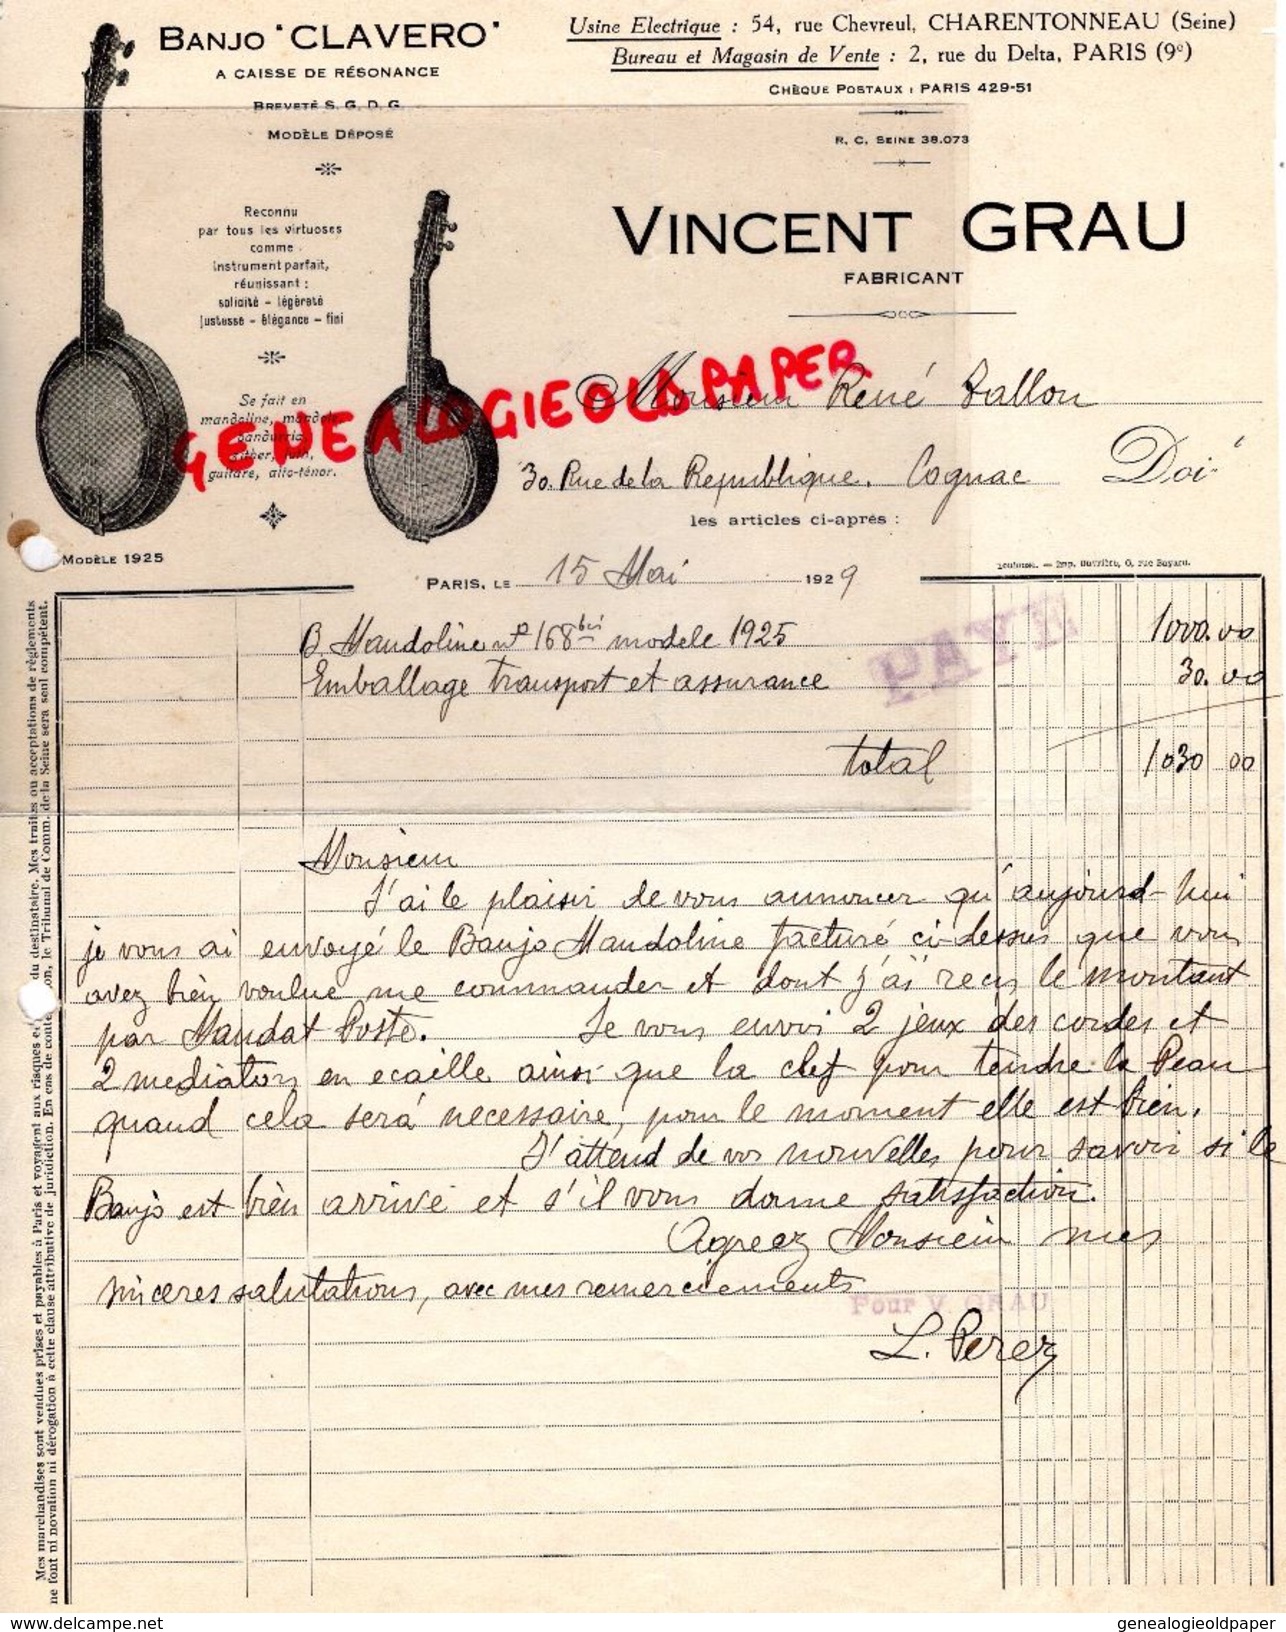 BANJO "CLAVERO"
A CAISSE DE RÉSONANCE
BREVETÉ S. G. D. G.
MODÈLE DÉPOSÉ
Reconnu
par tous les virtuoses
comme
instrument parfait,
réunissant :
solidité - légèreté
justesse - élégance - fini
Se fait en
mandoline, mandole
bandurria,
guitare, alto-ténor.
MODÈLE 1925
Usine Electrique : 54, rue Chevreul, CHARENTONNEAU (Seine)
Bureau et Magasin de Vente : 2, rue du Delta, PARIS (9e)
CHÈQUE POSTAUX : PARIS 429-51
R. C. SEINE 38.073
VINCENT GRAU
FABRICANT
GENEALOGIEOLDPAPER
Monsieur René Fallon
30. Rue de la République. Cognac Doit
les articles ci-après :
PARIS, LE 15 Mai 1929
Toulouse. — Imp. Ouvrière, 6, rue Bayard.
B. Mandoline nº 168 bis modele 1925 1000.00
Emballage transport et assurance 30.00
PAYÉ
total 1030 00
Monsieur
J'ai le plaisir de vous annoncer qu'aujourd-hui
je vous ai envoyé le Banjo Mandoline facturé ci-dessus que vous
avez bien voulue me commander et dont j'aï reçus le montant
par Mandat Poste. Je vous envoi 2 jeux des cordes et
2 mediators en ecaille ainsi que la clef pour tendre la Peau
quand cela serà necessaire, pour le moment elle est bien.
J'attend de vos nouvelles pour savoir si le
Banjo est bien arrivé et s'il vous donne satisfaction.
Agreez Monsieur mes
sinceres salutations, avec mes remerciements
Pour V. GRAU
L. Perez
Mes marchandises sont vendues prises et payables à Paris et voyagent aux risques et du destinataire. Mes traites ou acceptations de règlements
ne font ni novation ni dérogation à cette clause attributive de juridiction. En cas de contestation, le Tribunal de Comm. de la Seine sera seul compétent.
www.delcampe.net
genealogieoldpaper